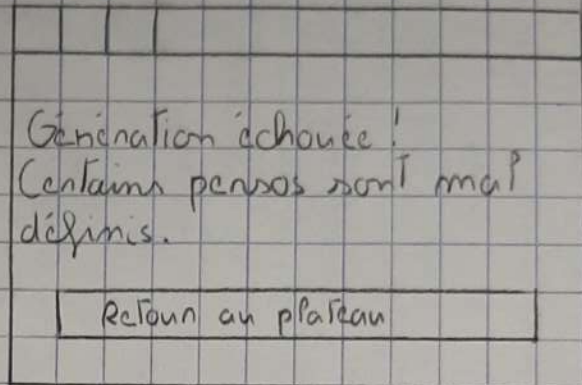 Génération échouée !
Certains persos sont mal
définis.
Retour au plateau